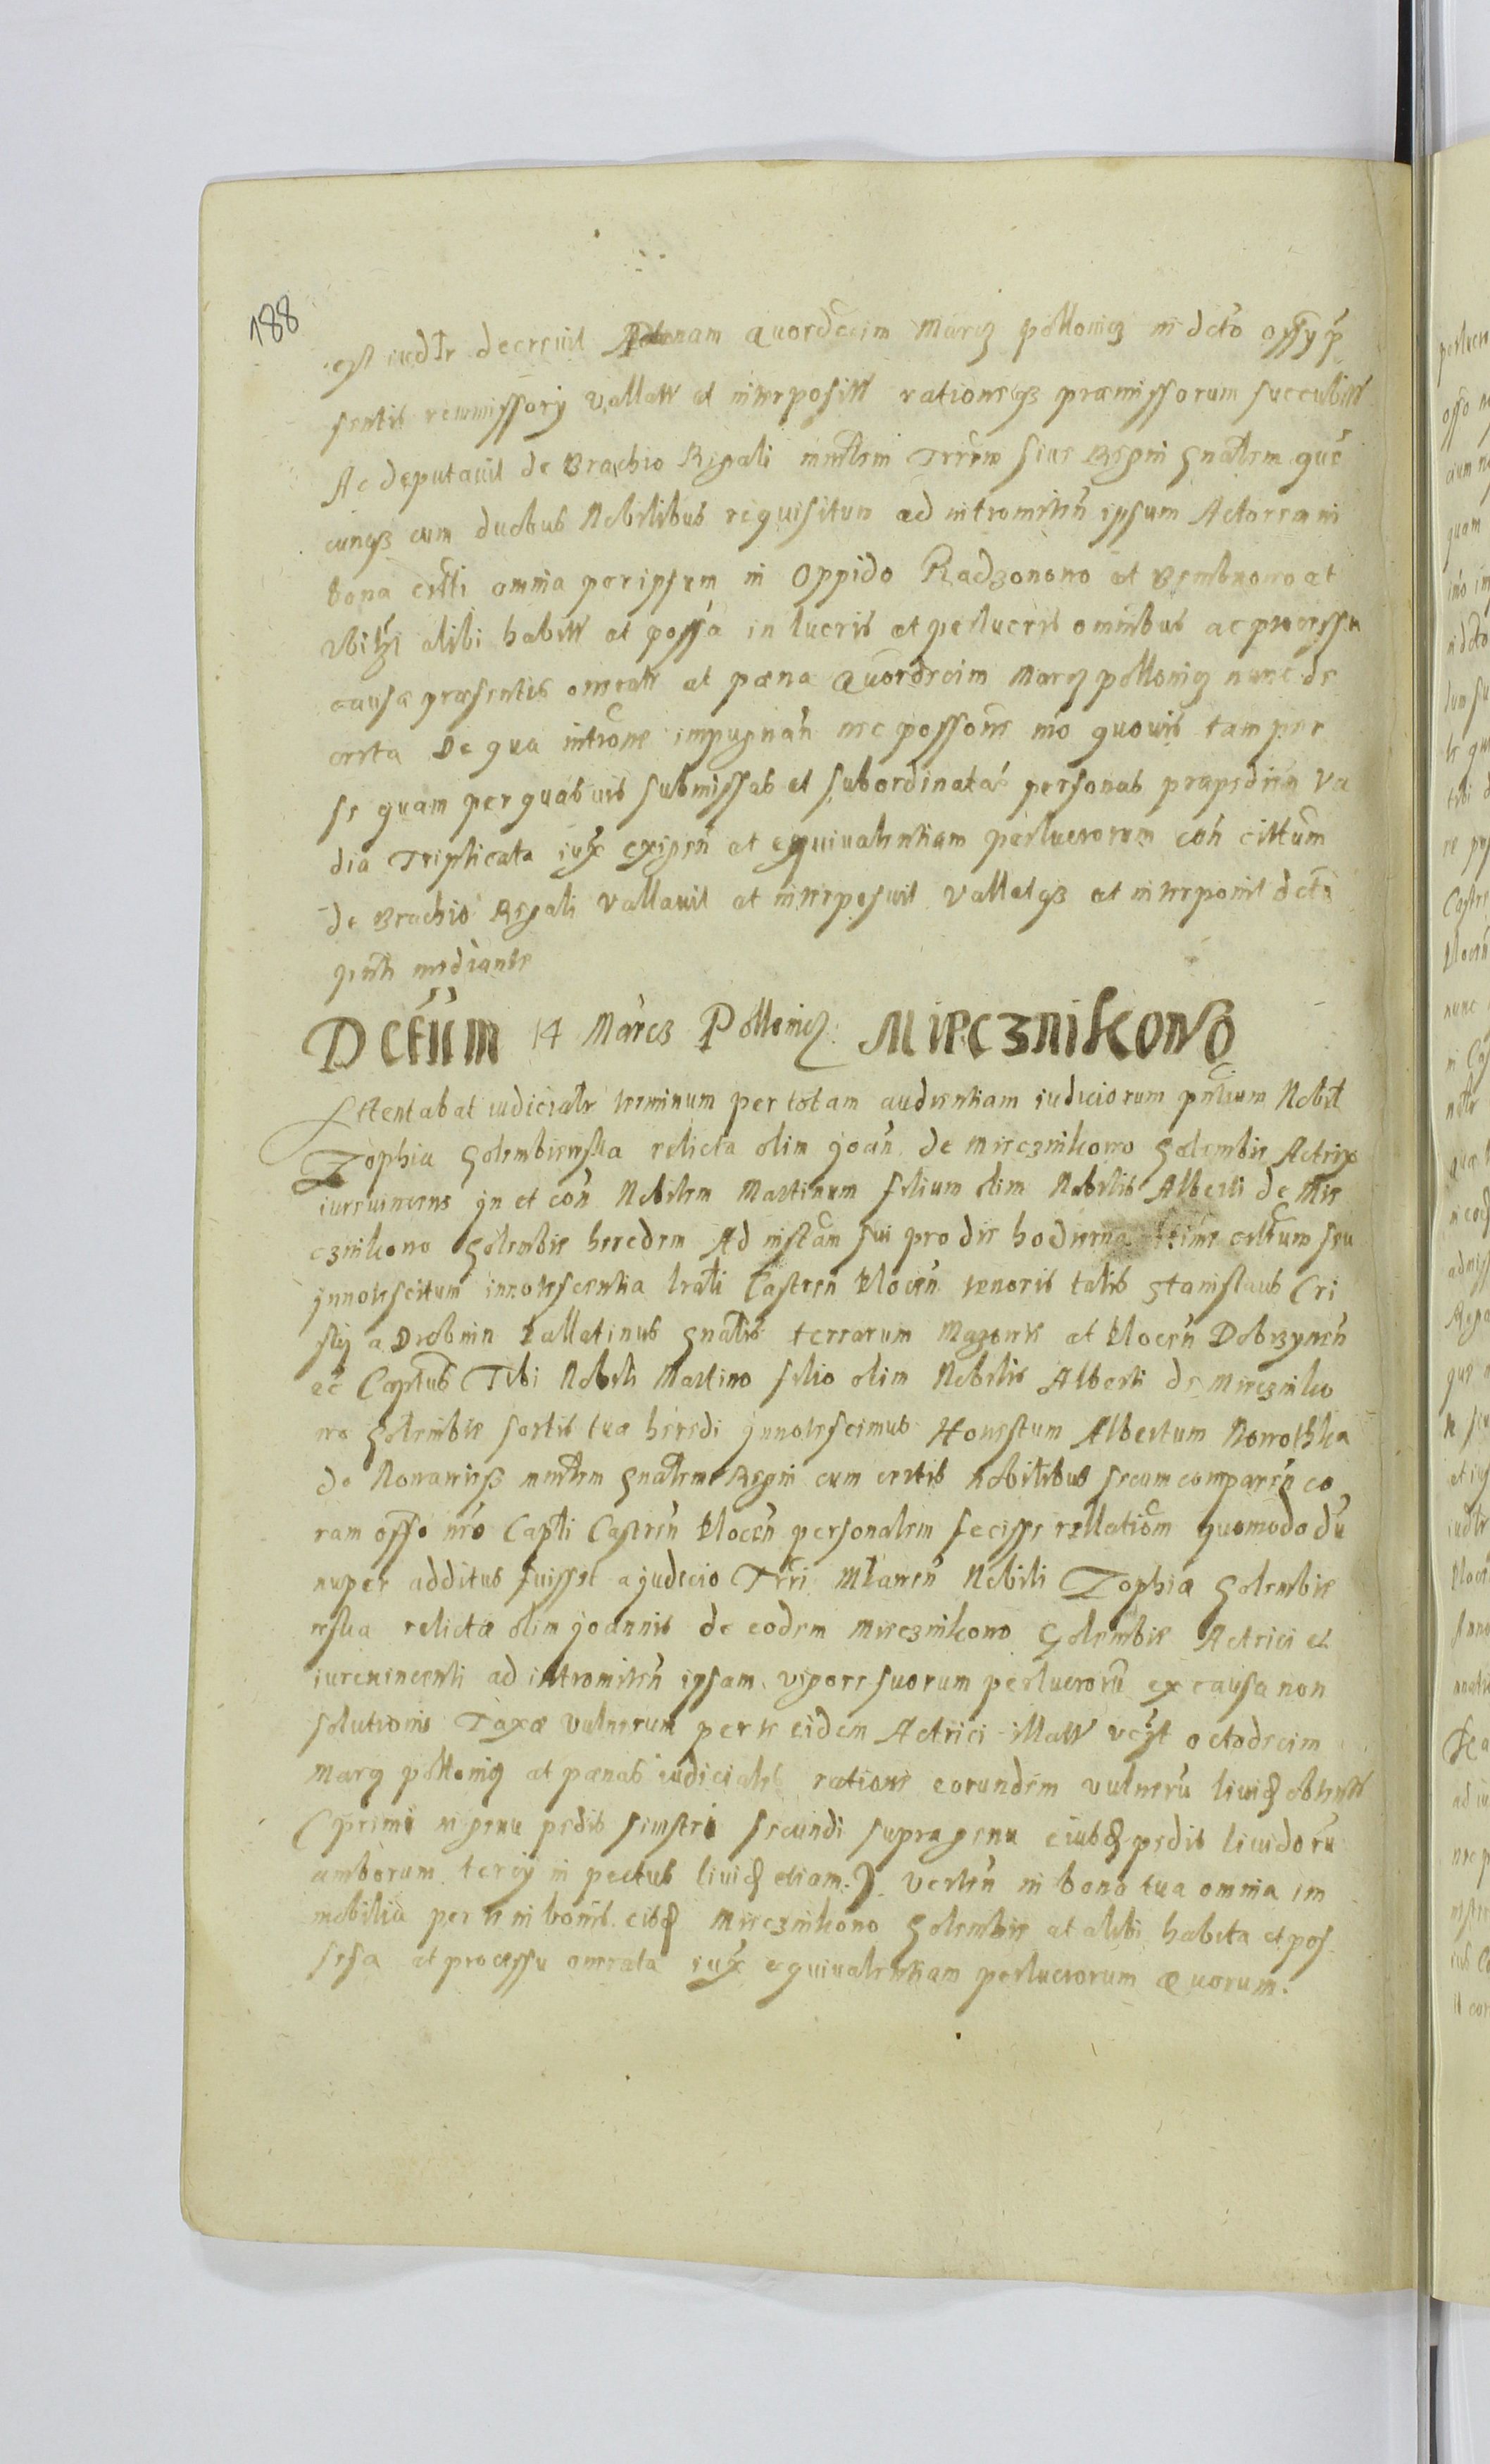 188
est iudtr decrevit Poenam quordecim Marcz pollonicz in dcto offy p
sentis remissorÿ vallatt et interpositt rationeqz praemissorum succubitt
Ac deputavit de Brachio Regali mintrlem Trrem sive Regni gnalem que
cunqz cum duobus Nobilibus requisitum ad intromitten ipsum Actorem in
bona citti omnia per ipsum in Oppido Radzonowo et Bembnowo et
ubivis alibi habitt et possa in lucris et perlucris omnibus ac processu
causae praesentis oneratt et poena quordecim Marcz pollonicz nunc de
creta De qua introne impugnan nec possone mo quovis tam per
se quam per quasvis submissas et subordinatas personas praepedien va
dia Triplicata iux exigen et equivalentiam perlucrorum con cittum
de Brachio Regali vallavit et interposuit vallatqz et interponit dcto
pnti mediante
Dctum 14 Marcz Pollonicz Miecznikowo
Attentabat iudicialr terminum per totam audientiam iudiciorum pntium Nobil
Zophia Golembiewska relicta olim Joan de Miecznikowo Golembie Actrix
iurevincens in et con Nobilem Martinum filium olim Nobilis Alberti de Mie
cznikowo Golembie heredem Ad instam sui pro die hodierna ssime cittum seu
innotescitum innotescentia lrali Castren Plocen tenoris talis Stanislaus Cri
skÿ a Drobnin Pallatinus gnalis terrarum Mazovie et Plocen Dobrzynen
ac Captus Tibi Nobili Martino filio olim Nobilis Alberti de Mieczniko
wo Golembie sortis tuae heredi innotescimus Honestum Albertum Nowothka
de Nowawiesz mintrlem gnalem Regni cum certis nobilibus secum comparen co
ram offo nro Captli Castren Plocen personalem fecisse rellationem quomodo du
nuper additus fuisset a judicio Trri Mlawen Nobili Zophiae Golembie
wska relictae olim Joannis de eodem Miecznikowo Golembie Actrici et
iurevincenti ad intromitten ipsam vigore suorum perlucroru ex causa non
solutionis Taxae vulnerum per te eidem Actrici illatt vczt octodecim
Marcz pollonicz et poenas iudiciales ratione eorundem vulneru livid obtentt
(primi in genu pedis sinistri secundi supra genu eiusd pedis lividoru
amborum tercÿ in pectus livid etiam) verten in bona tua omnia im
mobilia per te in bonis eisd Miecznikowo Golembie et alibi habita et pos
sesa et processu onerata iux equivalentiam perlucrorum quorum